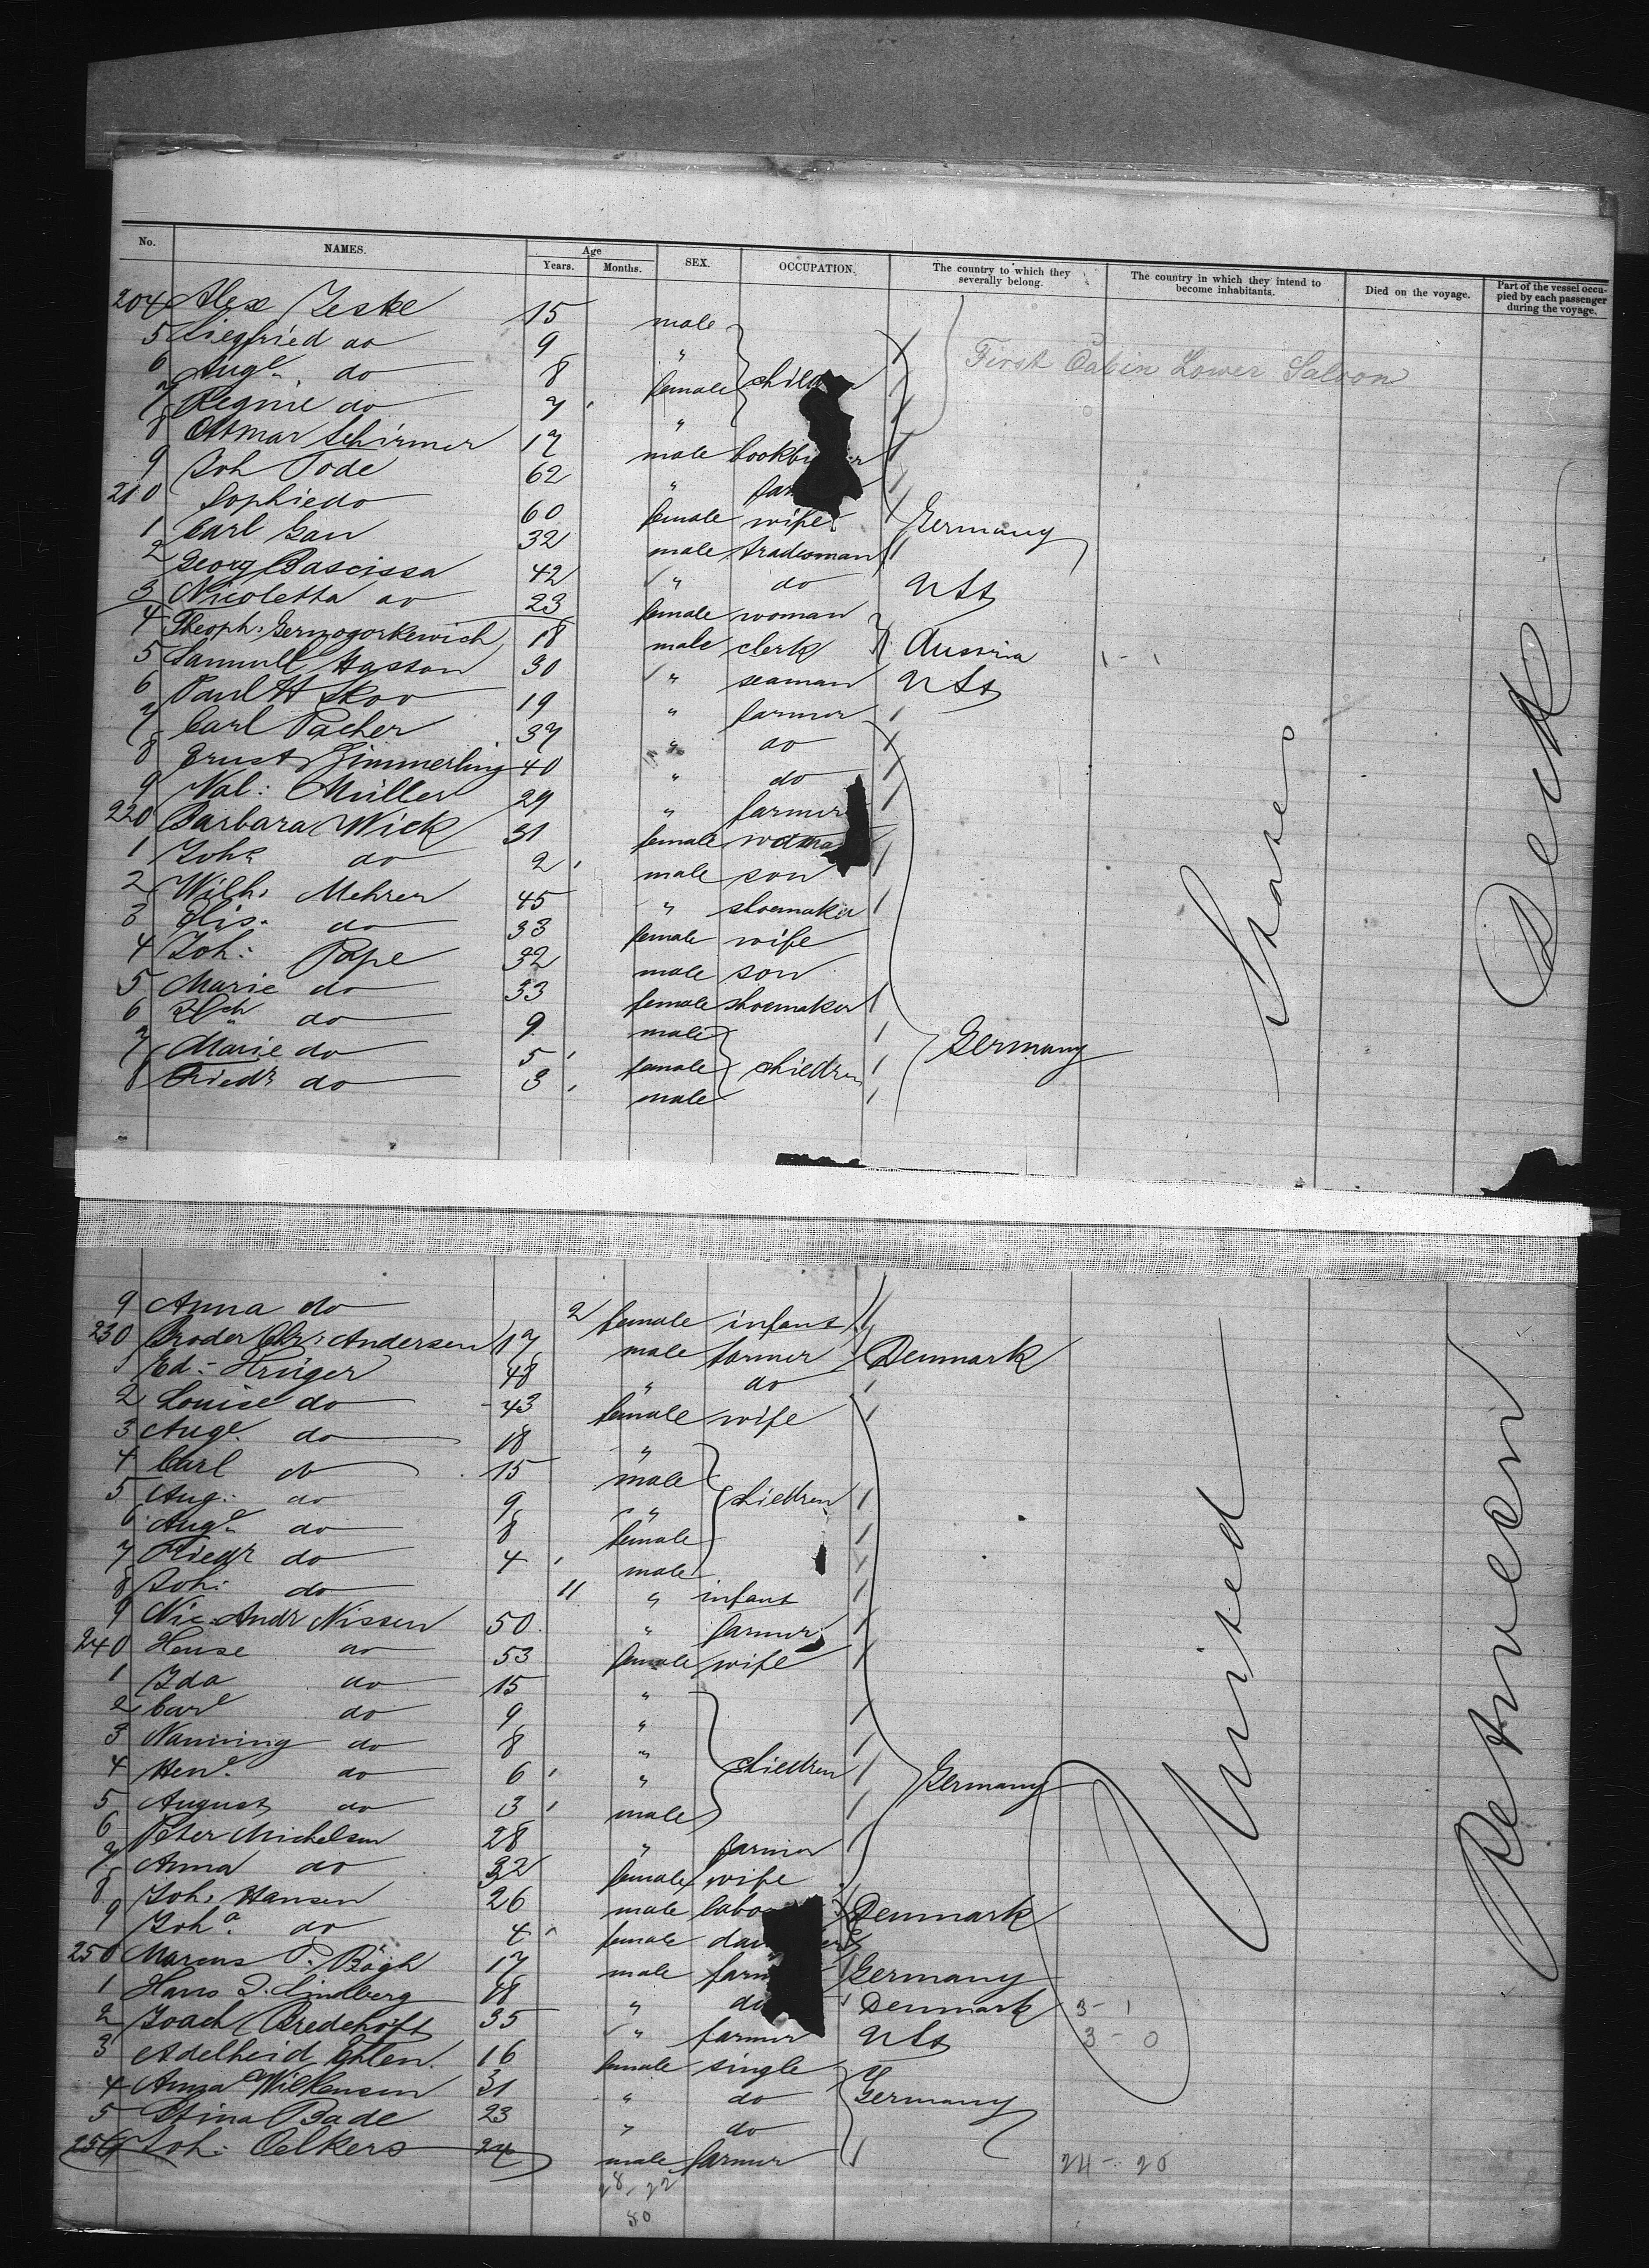 No. NAMES. Age Years. Months. SEX. OCCUPATION. The country to which they severally belong. The country in which they intend to become inhabitants. Died on the voyage. Part of the vessel occupied by each passenger during the voyage.
204 Alex Jeske 15 male
5 Siegfried do 9 "
6 Auge. do 8 female children First Cabin Lower Saloon
7 Regine do 7 "
8 Ottmar Schirmer 17 male
9 Joh Tode 62 "
210 Sophie do 60 female wife Germany
1 Carl Gau 32 male tradesman
2 Georg Bascissa 42 " do USt
3 Nicoletta do 23 female woman
4 Theoph. Gerzogorkewich 18 male clerk Austria
5 Samuell Hasson 30 " seaman USt
6 Paul H Skov 19 " farmer
7 Carl Pacher 37 " do
8 Ernst Zimmerling 40 " do
9 Val: Müller 29 " farmer
220 Barbara Wick 31 female
1 Joha do 2 male son
2 Wilh. Mehrer 45 " shoemaker
3 Elis. do 33 female wife
4 Joh: Pape 32 male son
5 Marie do 33 female shoemaker
6 Hch do 9 male
7 Marie do 5 female children Germany
8 Friedr do 3 male
States Deck
9 Anna do 2 female infant
230 Broder Chr. Andersen 17 male farmer Denmark
1 Ed: Krüger 48 " do
2 Louise do 43 female wife
3 Auge. do 18 "
4 Carl do 15 male
5 Aug: do 9 " children
6 Auge. do 8 female
7 Friedr do 4 male
8 Joh: do 11 " infant
9 Nic: Andr Nissen 50 " farmer
240 do 53 female wife
1 Ida do 15 "
2 Care do 9 "
3 Nanning do 8 "
4 Hene. do 6 " children Germany
5 August do 3 male
6 Peter Michelsen 28 " farmer
7 Anna do 32 female wife
8 Joh. Hansen 26 male Denmark
9 Joha. do 4 female
250 Marcus P. Bögh 17 male Germany
1 Hans J. Lindberg 18 " do Denmark 3-1
2 Joach Bredehöft 35 " farmer USt 3-0
3 Adelheid Ehlen 16 female single
4 Anna Wilkensen 31 " do Germany
5 Stina Bade 23 " do
256 Joh: Oelkers 24 male farmer 24-26
28, 22
50
United Between